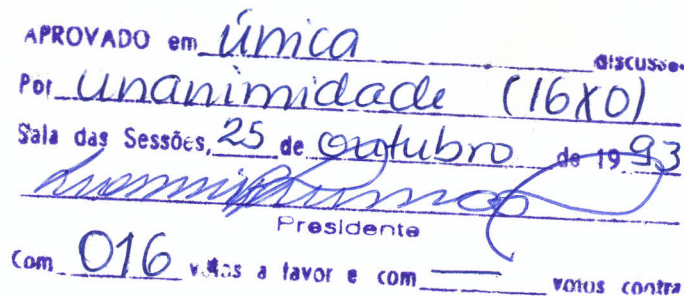 APROVADO em única discussão
Por unanimidade (16X0)
Sala das Sessões, 25 de outubro de 1993
Presidente
Com 016 votos a favor e com — votos contra